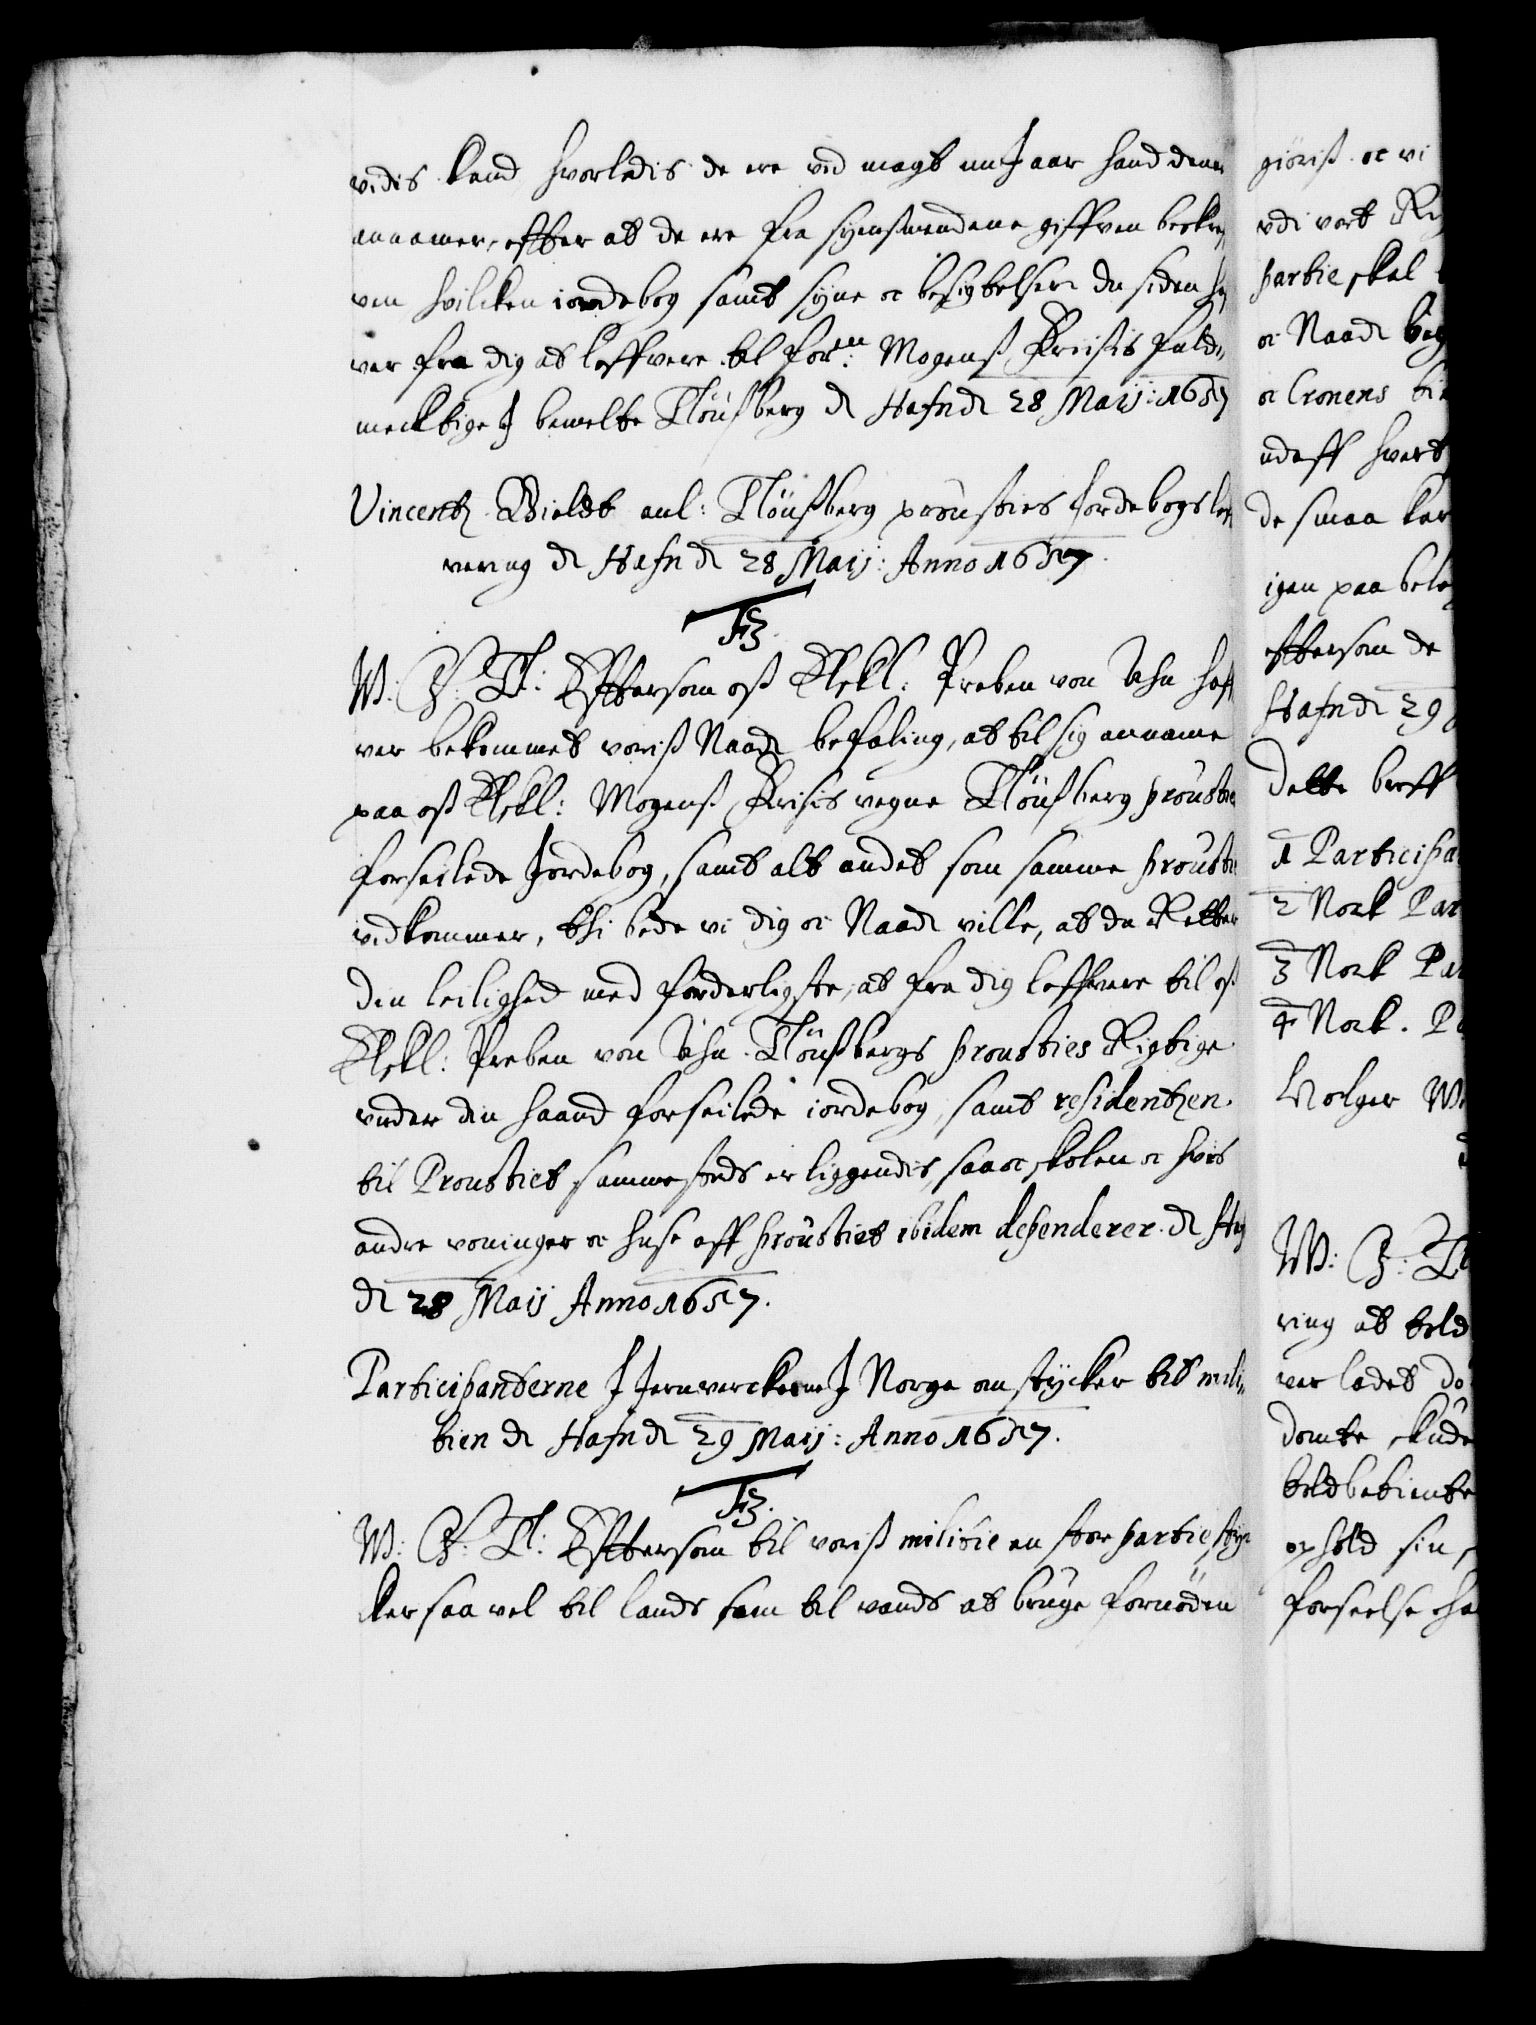 vidis kand hvorledis de ere ved magt naar hand dem
annamer, effter at de ere fra synsmendene giffven beskre
ven hvilcken iordebog samt syne oc besigtelser du siden ha
ver fra dig at leffvere til for:ne Mogenß Friisis fuld„
mecktige I bemelte Tönßberg dt Hafn dt 28 Maij: 1657
Vincentz Bieldt anl: Tönßberg prousties Jordebogs lef
vering dt Hafn dt 28 Maij: Anno 1657.
F3.
W: G: T: Effter som oß Elskl: Preben von Ahn haf
ver bekommet voriß Naadt befaling, at til sig anname
paa oß Elskl: Mogenß Friisis vegne Tönßberg proustie
forseilede Jordebog, samt alt andet som samme proustie
vedkommer, thi bede vi dig oc Naadt ville, at du Retter
din leilighed med forderligste, at fra dig leffvere til oß
Elskl: Preben von Ahn Tönßbergs prousties Rigtige
under din haand forseilede iordebog, samt residentzen.
til Proustiet sammesteds er liggendis, saa oc skolen oc hvis
andre voninger oc huse aff proustiet ibidem dependerer. dt Ha
dt 28 Maij Anno 1657.
Participanterne I Jernverckerne I Norge om stycker til mili„
tien dt Hafn dt 29 Maij: Anno 1657.
F3.
W: G: T: Effter som til voriß militie en stor partie styc
ker saa vel til lands som til vands at bruge fornöden
giöriß oc vi
udi vort
partie skal
oc Naadt
oc Cronens
udaff hvert
de smaa
igen paa
effter som de
Hafn dt 29
Dette
1 Participa
2 Nock Par
3 Nock Pa
4 Nock. P
Holger
W: G: T
ring at
ver ladet
domte
ophold sin
forseelse